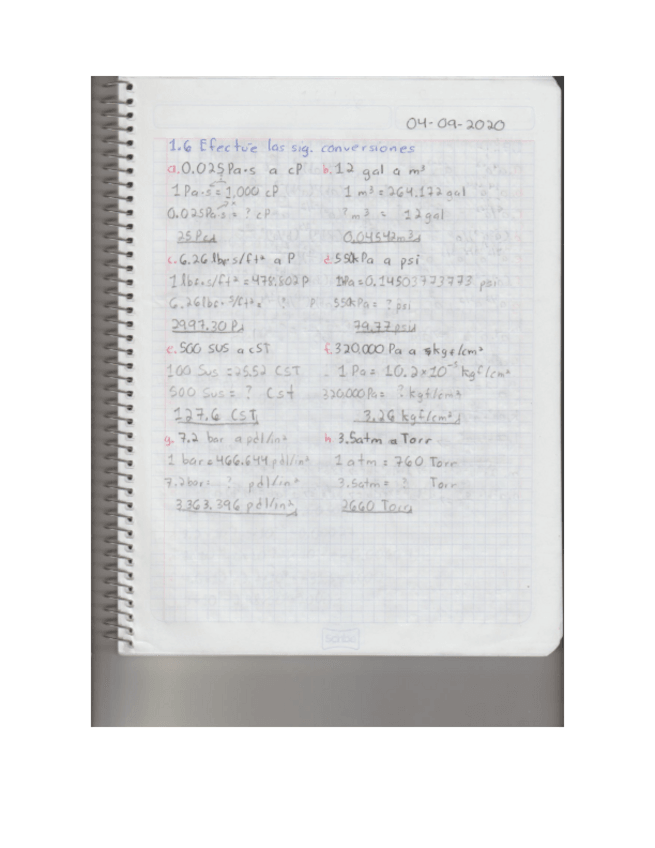 04-09-2020
1.6 Efectúe las sig. conversiones
a. 0.025 Pa·s a cP
1 Pa·s = 1,000 cP
0.025 Pa·s = ? cP
25 Pcd
b. 12 gal a m³
1 m³ = 264.172 gal
? m³ = 12 gal
0.04542 m³
c. 6.26 lbf·s/ft² a P
1 lbf·s/ft² = 478.802 P
6.26 lbf·s/ft² = ? P
2997.30 P
d. 550 kPa a psi
1 kPa = 0.14503773773 psi
550 kPa = ? psi
79.77 psi
e. 500 SUS a cST
100 Sus = 25.52 CST
500 Sus = ? Cst
127.6 CST
f. 320,000 Pa a kgf/cm²
1 Pa = 10.2x10⁻⁵ kgf/cm²
320,000 Pa = ? kgf/cm²
3.26 kgf/cm²
g. 7.2 bar a pdl/in²
1 bar = 466.644 pdl/in²
7.2 bar = ? pdl/in²
3363.396 pdl/in²
h 3.5 atm a Torr
1 atm = 760 Torr
3.5 atm = ? Torr
2660 Torr